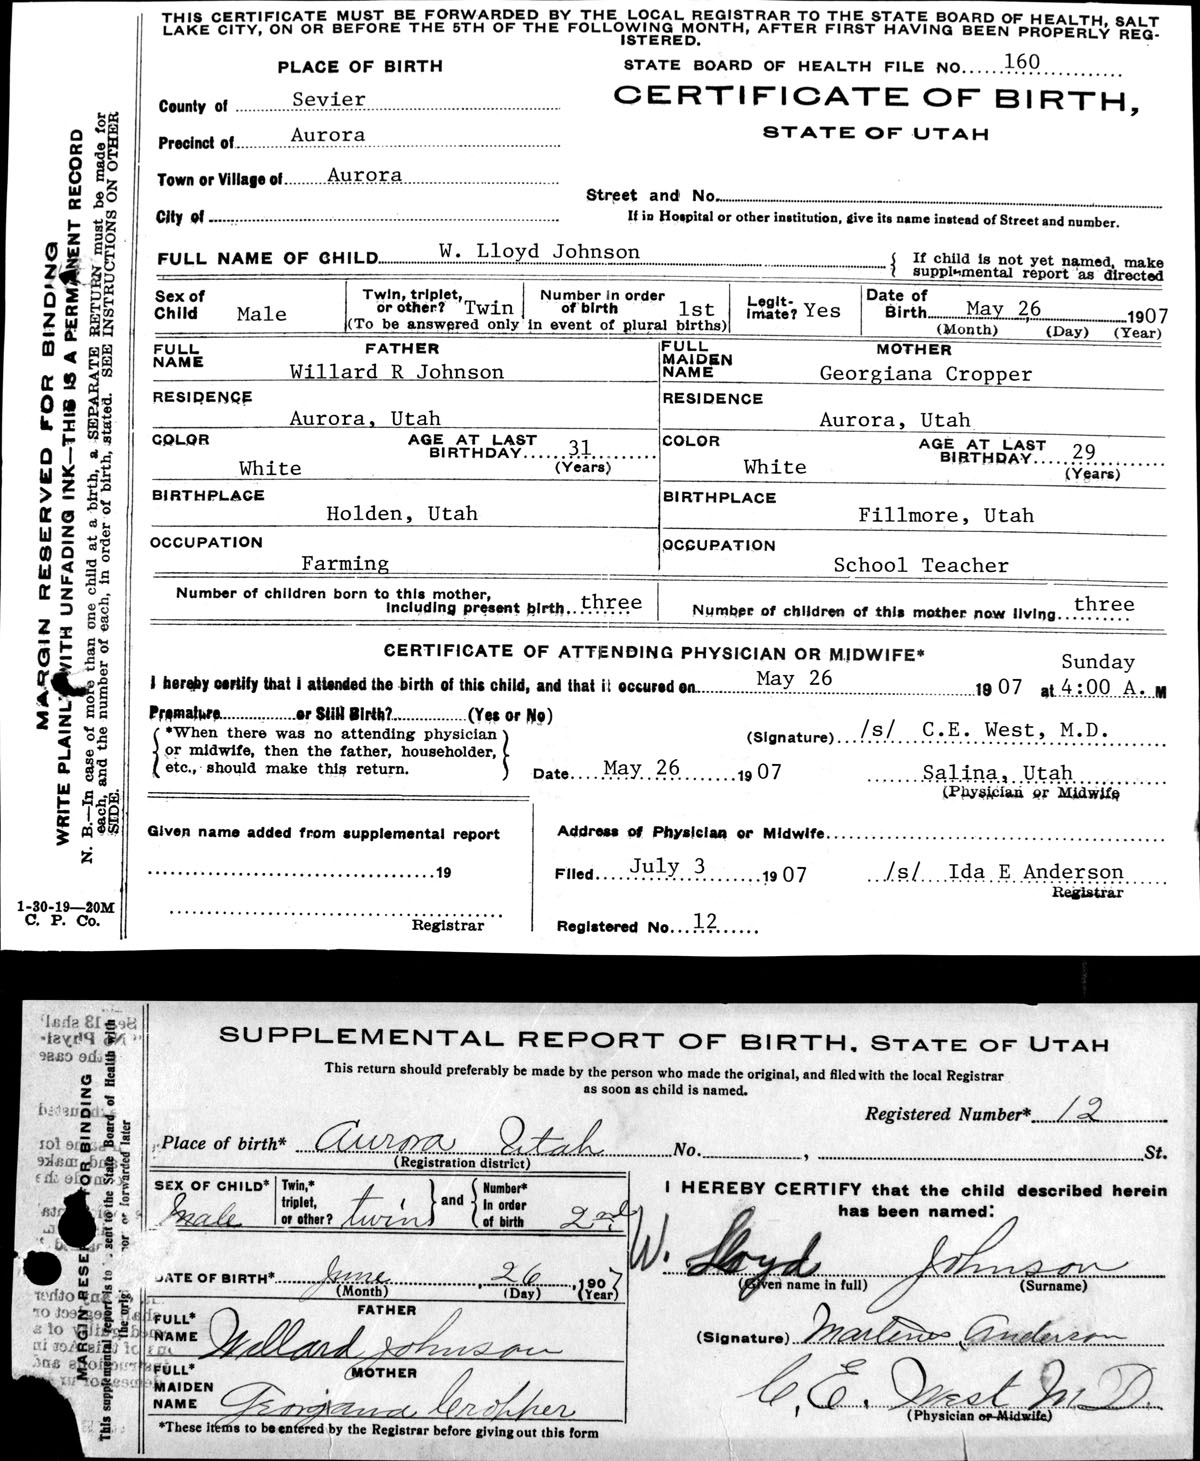 THIS CERTIFICATE MUST BE FORWARDED BY THE LOCAL REGISTRAR TO THE STATE BOARD OF HEALTH, SALT
LAKE CITY, ON OR BEFORE THE 5TH OF THE FOLLOWING MONTH, AFTER FIRST HAVING BEEN PROPERLY REG-
ISTERED.
PLACE OF BIRTH
STATE BOARD OF HEALTH FILE NO. 160
County of Sevier
CERTIFICATE OF BIRTH,
STATE OF UTAH
Precinct of Aurora
Town or Village of Aurora
Street and No.
City of
If in Hospital or other institution, give its name instead of Street and number.
FULL NAME OF CHILD W. Lloyd Johnson
If child is not yet named, make
supplemental report as directed
Sex of Child Male
Twin, triplet, or other? Twin
Number in order of birth 1st
(To be answered only in event of plural births)
Legit-imate? Yes
Date of Birth May 26, 1907
(Month) (Day) (Year)
FATHER
FULL NAME Willard R Johnson
MOTHER
FULL MAIDEN NAME Georgiana Cropper
RESIDENCE Aurora, Utah
RESIDENCE Aurora, Utah
COLOR White
AGE AT LAST BIRTHDAY 31 (Years)
COLOR White
AGE AT LAST BIRTHDAY 29 (Years)
BIRTHPLACE Holden, Utah
BIRTHPLACE Fillmore, Utah
OCCUPATION Farming
OCCUPATION School Teacher
Number of children born to this mother,
including present birth three
Number of children of this mother now living three
CERTIFICATE OF ATTENDING PHYSICIAN OR MIDWIFE*
Sunday
I hereby certify that I attended the birth of this child, and that it occured on May 26 1907 at 4:00 A. M
Premature or Still Birth? (Yes or No)
*When there was no attending physician
or midwife, then the father, householder,
etc., should make this return.
(Signature) /s/ C.E. West, M.D.
Date May 26 1907
Salina, Utah
(Physician or Midwife
Given name added from supplemental report
19
Registrar
Address of Physician or Midwife
Filed July 3 1907
/s/ Ida E Anderson
Registrar
Registered No. 12
MARGIN RESERVED FOR BINDING
WRITE PLAINLY WITH UNFADING INK—THIS IS A PERMANENT RECORD
N. B.—In case of more than one child at a birth, a SEPARATE RETURN must be made for
each, and the number of each, in order of birth, stated. SEE INSTRUCTIONS ON OTHER
SIDE.
1-30-19—20M
C. P. Co.
SUPPLEMENTAL REPORT OF BIRTH, STATE OF UTAH
This return should preferably be made by the person who made the original, and filed with the local Registrar
as soon as child is named.
Registered Number* 12
Place of birth* Aurora Utah No. , St.
(Registration district)
SEX OF CHILD* Male
Twin,* triplet, or other? twin
and
Number* In order of birth 2nd
I HEREBY CERTIFY that the child described herein
has been named:
W. Lloyd Johnson
(Given name in full) (Surname)
DATE OF BIRTH* June, 26, 1907
(Month) (Day) (Year)
FATHER
FULL* NAME Willard Johnson
(Signature) Martenes Anderson
MOTHER
FULL* MAIDEN NAME Georgiana Cropper
C. E. West M D.
(Physician or Midwife)
*These items to be entered by the Registrar before giving out this form